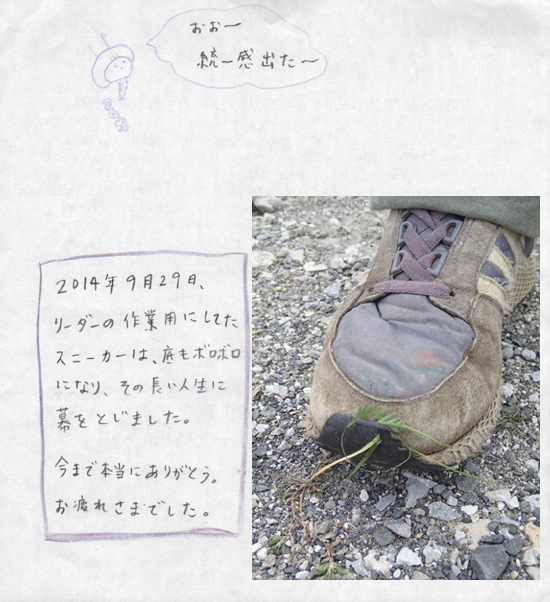 おぉ〜
統一感出た〜
2014年9月29日、
リーダーの作業用にしてた
スニーカーは、底もボロボロ
になり、その長い人生に
幕をとじました。
今まで本当にありがとう。
お疲れさまでした。